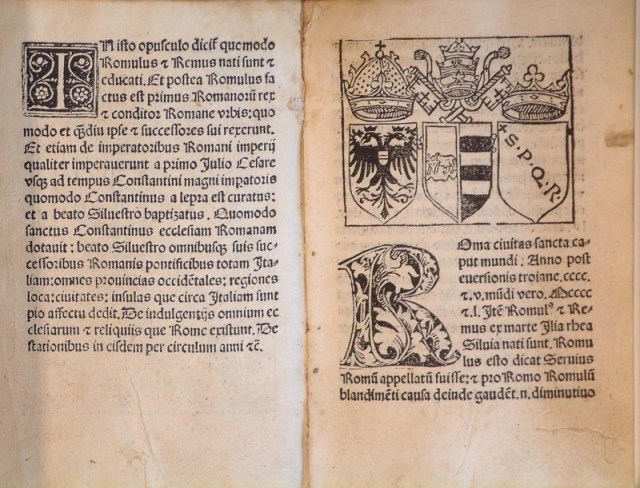 In isto opusculo dicit̃ quomodo
Romulus ⁊ Remus nati sunt ⁊
educati. Et postea Romulus fa
ctus est primus Romanorũ rex
⁊ conditor Romane vrbis; quo
modo et q̃diu ipse ⁊ successores sui rexerunt.
Et etiam de imperatoribus Romani imperij
qualiter imperauerunt a primo Julio Cesare
vsq; ad tempus Constantini magni imp̃atoris
quomodo Constantinus a lepra est curatus:
et a beato Siluestro baptizatus. Quomodo
sanctus Constantinus ecclesiam Romanam
dotauit: beato Siluestro omnibusq; suis suc-
cessoribus Romanis pontificibus totam Ita-
liam: omnes prouincias occidẽtales; regiones
loca: ciuitates; insulas que circa Italiam sunt
pio affectu dedit. De indulgẽtijs omnium ec
clesiarum ⁊ reliquiis que Rome existunt. De
stationibus in eisdem per circulum anni ⁊c̃.
S.P.Q.R
Roma ciuitas sancta ca
put mundi. Anno post
euersionis troiane. cccc.
⁊. v. mũdi vero. Mcccc
⁊. l. Itẽ Romulꝰ ⁊ Re-
mus ex marte Ilia rhea
Siluia nati sunt. Romu
lus esto dicat Seruius
Romũ appellatũ fuisse: ⁊ pro Romo Romulũ
blandimẽti causa deinde gaudẽt. n. diminutiuo